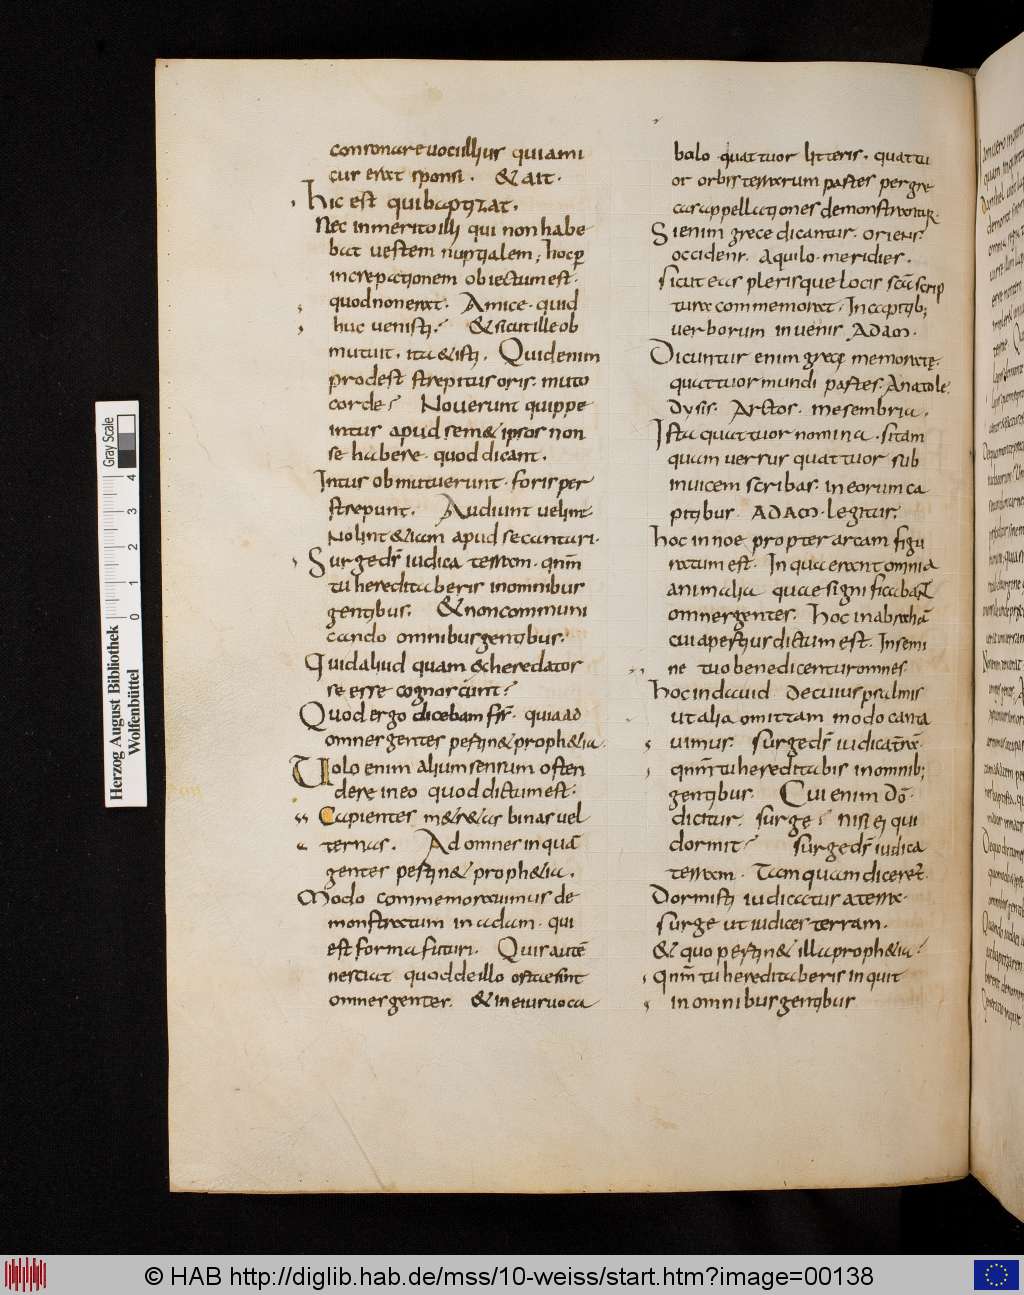 consonare vocillius quiami
cus erat sponsi. & ait.
hic est quibaptizat.
Nec inmerito illi qui non habe
bat uestem nuptialem; hoc ꝑ
increpationem obiectum est.
quod non erat. Amice. quid
huc uenisti? & sicut ille ob
mutuit. ita & isti. Quid enim
prodest strepitus oris. muto
corde? Nouerunt quippe
intus apud sem& ipsos non
se habere. quod dicant.
Intus obmutuerunt. foris per
strepunt. Audiunt uelint
nolint & iam apud se canturi.
Surge d̄s iudica terram. qn̄m
tu hereditaberis in omnibus
gentibus. & non communi
cando omnibus gentibus.
Quid aliud quam exheredatos
se esse cognoscunt?
Quod ergo dicebam fr̄s. quia ad
omnes gentes pertin& proph&ia.
Uolo enim alium sensum osten
dere in eo quod dictum est.
Capientes m&r&as binas uel
ternas. Ad omnes inquā
gentes pertin& proph&ia.
Modo commemorauimus de
monstratum in adam. qui
est forma futuri. Quis autē
nesciat quod de illo ortae sint
omnes gentes. & in eius uoca
bolo quattuor litteris. quattu
or orbis terrarum partes per gre
cas appellationes demonstrantur.
Si enim grece dicantur. oriens.
occidens. aquilo. meridies.
sicut eas plerisque locis sc̄a scrip
tura commemorat. In capitib;
uerborum inuenis ADAM.
Dicuntur enim grecę memoratę.
quattuor mundi partes. Anatole.
Dysis. Arctos. mesembria.
Ista quattuor nomina. si tam
quam uersus quattuor sub
inuicem scribas. in eorum ca
pitibus ADAM. legitur.
hoc in noe propter arcam figu
ratum est. In qua erant omnia
animalia quae significabant
omnes gentes. hoc in abrahā
cui apertius dictum est. In semi
ne tuo benedicentur omnes.
hoc in dauid de cuius psalmis
ut alia omittam modo canta
uimus. surge d̄s iudica t̄rā.
qn̄m tu hereditabis in omnib;
gentibus. Cui enim dō.
dicitur. surge? nisi ei qui
dormit? surge d̄s iudica
terram. Tamquam diceret.
Dormisti iudicatus a terra.
surge ut iudices terram.
& quo pertin& illa proph&ia?
qn̄m tu hereditaberis inquit
in omnibus gentibus
Herzog August Bibliothek
Wolfenbüttel
0 1 2 3 4
Gray Scale
© HAB http://diglib.hab.de/mss/10-weiss/start.htm?image=00138